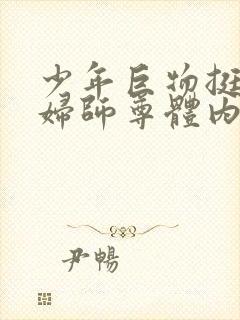 少年巨物挺
婦師尊體內
尹暢